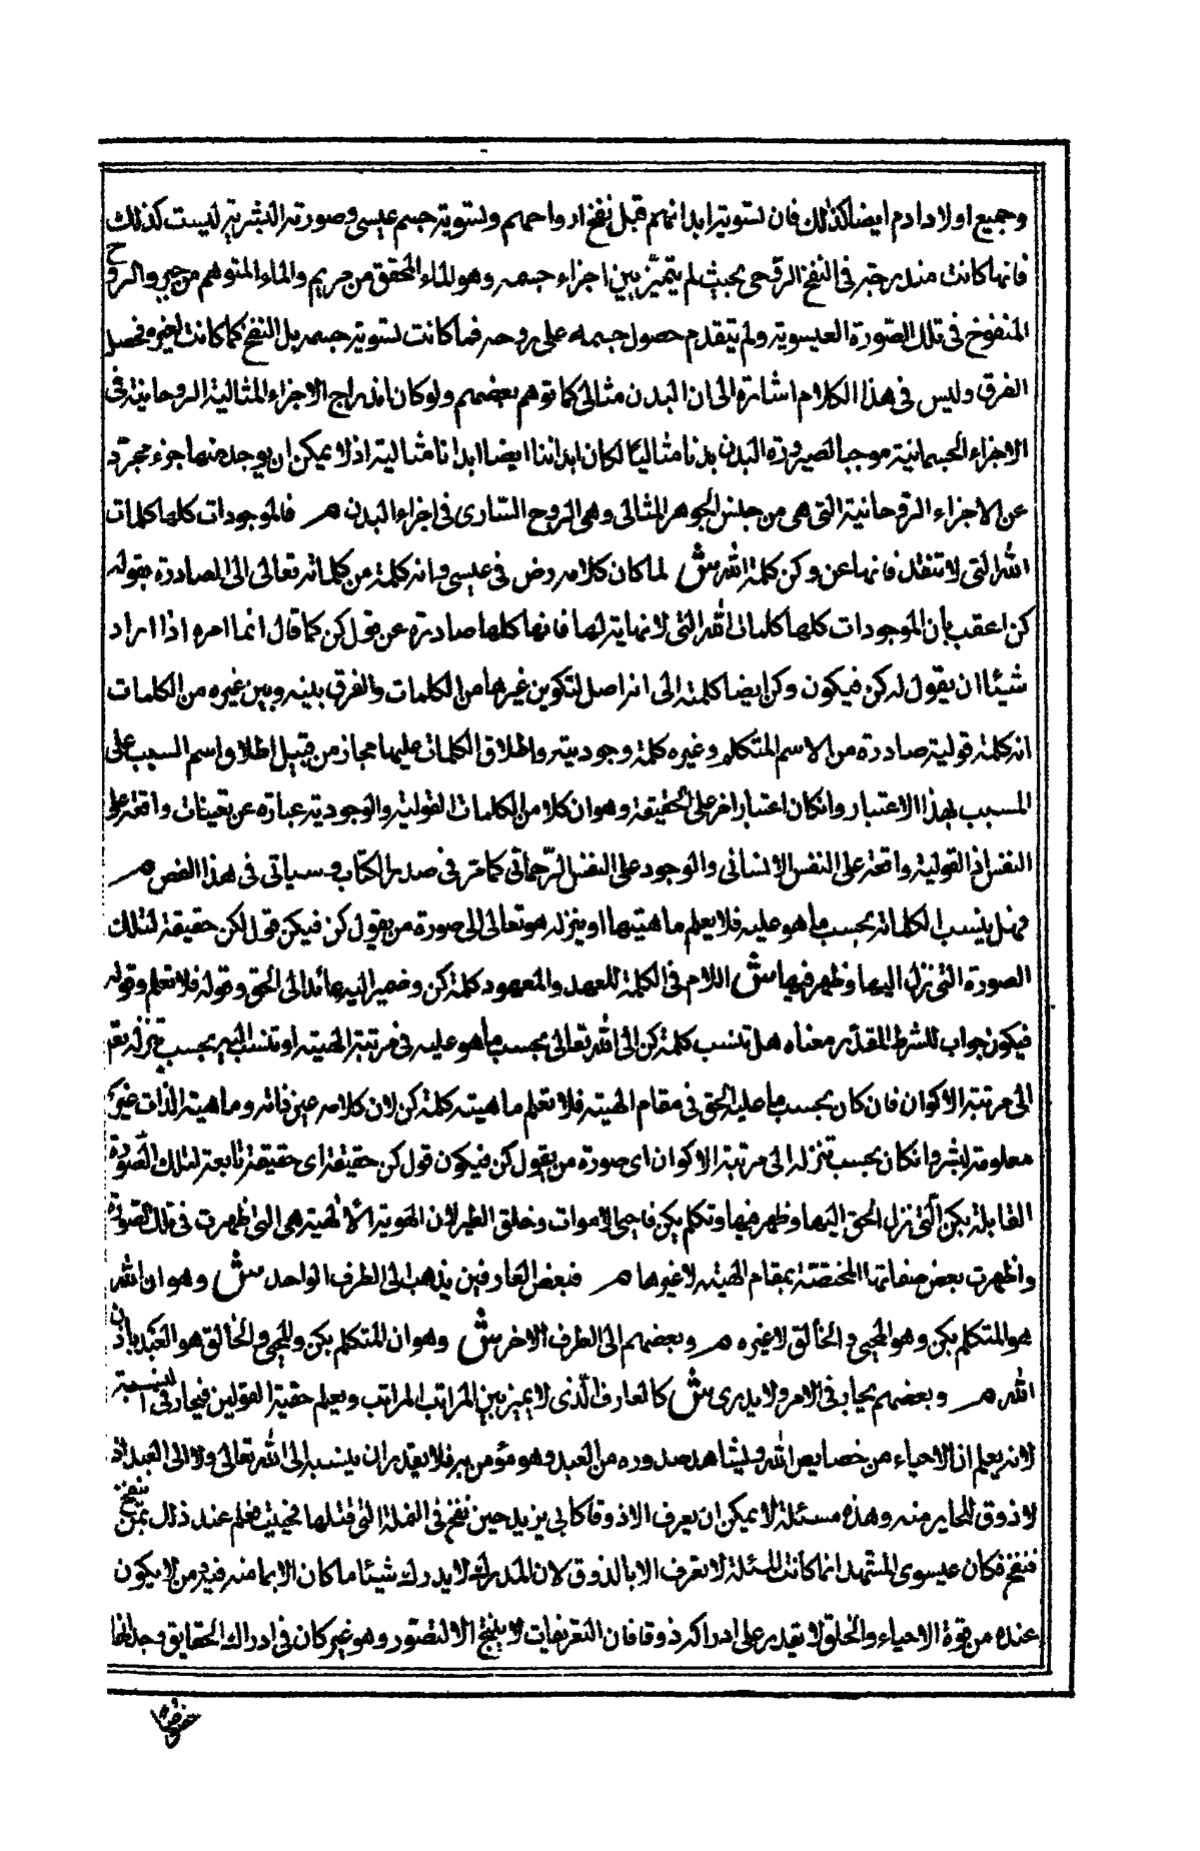 وجميع اولاد ادم ايضا كذلك فان تسوية ابدانهم قبل نفخ ارواحهم وتسوية جسم عيسى وصورته البشرية ليست كذلك
فانها كانت مندرجة فى النفخ الروحى بحيث لم يتميّز بين اجزاء جسمه وهو الماء المحقق من مريم والماء المتوهم من جبر والروح
المنفوخ فى تلك الصّورة العيسوية ولم يتقدم حصول جسمه على روحه فما كانت تسوية جسمه بل النفخ كما كانت لغيره فحصل
الفرق وليس فى هذا الكلام اشارة الى ان البدن مثالى كما توهم بعضهم ولو كان اندراج الاجزاء المثالية الروحانية فى
الاجزاء الجسمانية موجبا لصيرورة البدن بدنا مثاليّا لكان ابداننا ايضا ابدانا مثالية اذ لا يمكن ان يوجد منها جزء مجرّد
عن الاجزاء الروحانية التى هى من جنس الجوهر المثالى وهى الروح السّارى فى اجزاء البدن م فالموجودات كلها كلمات
الله التى لا تنفد فانها عن وكن كلمة الله ش لما كان كلامه رض فى عيسى وانه كلمة من كلماته تعالى الى الصادرة بقوله
كن اعقب بان الموجودات كلها كلمات الله التى لا نهاية لها فانها كلها صادرة عن قول كن كما قال انما امره اذا اراد
شيئا ان يقول له كن فيكون وكن ايضا كلمته الى انه اصل لتكوين غيرها من الكلمات والفرق بينه وبين غيره من الكلمات
انه كلمة قولية صادرة من الاسم المتكلم وغيره كلمة وجودية واطلاق الكلمات عليها مجاز من قبيل اطلاق اسم السبب على
المسبب بهذا الاعتبار وان كان اعتبار اخر على الحقيقة وهو ان كلا من الكلمات القولية والوجودية عبارة عن تعينات واقعة على
النفس اذ القولية واقعة على النفس الانسانى والوجود على النفس الرّحمانى كما مر فى صدر الكتاب وسياتى فى هذا الفص م
فهل ينسب الكلمات بحسب ما هو عليه فلا يعلم ماهيتها او ينزل هو تعالى الى صورة من يقول كن فيكن قول كن حقيقة لتلك
الصورة التى نزل اليها وظهر فيها ش اللام فى الكلمة للعهد والمعهود كلمة كن وضمير اليه عائد الى الحق وقوله فلا تعلم وقوله
فيكون جواب للشرط المقدّر معناه هل تنسب كلمة كن الى الله تعالى بحسب ما هو عليه فى مرتبة الهيته او تنسب اليه بحسب تنزله تعم
الى مرتبة الاكوان فان كان بحسب ما عليه الحق فى مقام الهيته فلا تعلم ماهيته كلمة كن لان كلامه عين ذاته وماهية الذات غير
معلومة لبشر وان كان بحسب تنزله الى مرتبة الاكوان اى صورة من يقول كن فيكون قول كن حقيقة اى حقيقة تابعة لتلك الصّورة
القابلة بكن الّتى نزل الحق اليها وظهر فيها وتكلم بكن فاحيى الاموات وخلق الطير لان الهوية الالهية هى التى ظهرت فى تلك الصّورة
واظهرت بعض صفاتها المختصّة بمقام الهيته لا غيرها م فبعض العارفين يذهب الى الطرف الواحد ش وهو ان الله
هو المتكلم بكن وهو المحيى والخالق لا غيره م وبعضهم الى الطرف الاخر ش وهو ان المتكلم بكن والمحيى والخالق هو العبد باذن
الله م وبعضهم يحار فى الامر ولا يدرى ش كالعارف الّذى لا يميز بين المراتب المراتب ويعلم حقية القولين فيحار فى النسبة
لانه يعلم ان الاحياء من خصايص الله ويشاهد صدوره من العبد وهو مؤمن به فلا يقدر ان ينسب الى الله تعالى ولا الى العبد اذ
لا ذوق للحاير منه وهذه مسئلة لا يمكن ان يعرف الا ذوقا كابى يزيد حين نفخ فى النملة التى قتلها فحييت فعلم عند ذلك بمن ينفخ
فنفخ فكان عيسوى المشهد انما كانت المسئلة لا تعرف الا بالذوق لان المدرك لا يدرك شيئا ما كان الا بما منه فيه من لا يكون
عنده من قوة الاحياء والخلق لا يقدر على ادراكه ذوقا فان التعريفات لا ينتج الا التصّور وهو غير كان فى ادراك الحقايق وجدانها